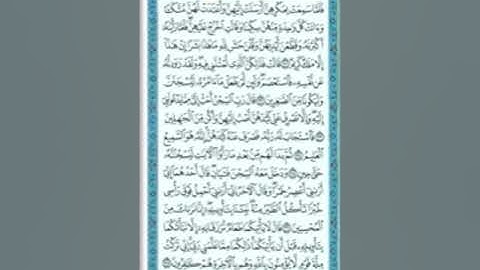 فَلَمَّا سَمِعَتْ بِمَكْرِهِنَّ أَرْسَلَتْ إِلَيْهِنَّ وَأَعْتَدَتْ لَهُنَّ مُتَّكَـًٔا
وَءَاتَتْ كُلَّ وَٰحِدَةٍ مِّنْهُنَّ سِكِّينًا وَقَالَتِ ٱخْرُجْ عَلَيْهِنَّ فَلَمَّا رَأَيْنَهُۥٓ
أَكْبَرْنَهُۥ وَقَطَّعْنَ أَيْدِيَهُنَّ وَقُلْنَ حَٰشَ لِلَّهِ مَا هَٰذَا بَشَرًا إِنْ هَٰذَآ
إِلَّا مَلَكٌ كَرِيمٌ ٣١ قَالَتْ فَذَٰلِكُنَّ ٱلَّذِى لُمْتُنَّنِى فِيهِ وَلَقَدْ رَٰوَدتُّهُۥ
عَن نَّفْسِهِۦ فَٱسْتَعْصَمَ وَلَئِن لَّمْ يَفْعَلْ مَآ ءَامُرُهُۥ لَيُسْجَنَنَّ
وَلَيَكُونًا مِّنَ ٱلصَّٰغِرِينَ ٣٢ قَالَ رَبِّ ٱلسِّجْنُ أَحَبُّ إِلَىَّ مِمَّا يَدْعُونَنِىٓ
إِلَيْهِ وَإِلَّا تَصْرِفْ عَنِّى كَيْدَهُنَّ أَصْبُ إِلَيْهِنَّ وَأَكُن مِّنَ ٱلْجَٰهِلِينَ
٣٣ فَٱسْتَجَابَ لَهُۥ رَبُّهُۥ فَصَرَفَ عَنْهُ كَيْدَهُنَّ إِنَّهُۥ هُوَ ٱلسَّمِيعُ
ٱلْعَلِيمُ ٣٤ ثُمَّ بَدَا لَهُم مِّنۢ بَعْدِ مَا رَأَوُا۟ ٱلْءَايَٰتِ لَيَسْجُنُنَّهُۥ
حَتَّىٰ حِينٍ ٣٥ وَدَخَلَ مَعَهُ ٱلسِّجْنَ فَتَيَانِ قَالَ أَحَدُهُمَآ إِنِّىٓ
أَرَىٰنِىٓ أَعْصِرُ خَمْرًا وَقَالَ ٱلْءَاخَرُ إِنِّىٓ أَرَىٰنِىٓ أَحْمِلُ فَوْقَ رَأْسِى
خُبْزًا تَأْكُلُ ٱلطَّيْرُ مِنْهُ نَبِّئْنَا بِتَأْوِيلِهِۦٓ إِنَّا نَرَىٰكَ مِنَ
ٱلْمُحْسِنِينَ ٣٦ قَالَ لَا يَأْتِيكُمَا طَعَامٌ تُرْزَقَانِهِۦٓ إِلَّا نَبَّأْتُكُمَا
بِتَأْوِيلِهِۦ قَبْلَ أَن يَأْتِيَكُمَا ذَٰلِكُمَا مِمَّا عَلَّمَنِى رَبِّىٓ إِنِّى تَرَكْتُ
مِلَّةَ قَوْمٍ لَّا يُؤْمِنُونَ بِٱللَّهِ وَهُم بِٱلْءَاخِرَةِ هُمْ كَٰفِرُونَ ٣٧